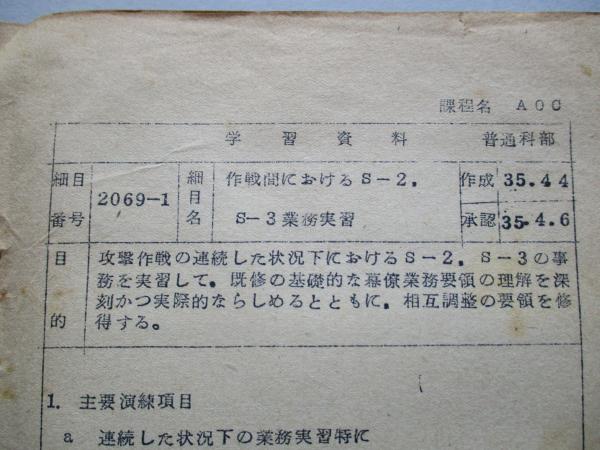 課程名 AOC
学習資料 普通科部
細目番号 2069-1 細目名 作戦間におけるS-2. S-3業務実習 作成 35.4.4 承認 35.4.6
目的 攻撃作戦の連続した状況下におけるS-2. S-3の事
務を実習して. 既修の基礎的な幕僚業務要領の理解を深
刻かつ実際的ならしめるとともに. 相互調整の要領を修
得する。
1. 主要演練項目
a 連続した状況下の業務実習特に